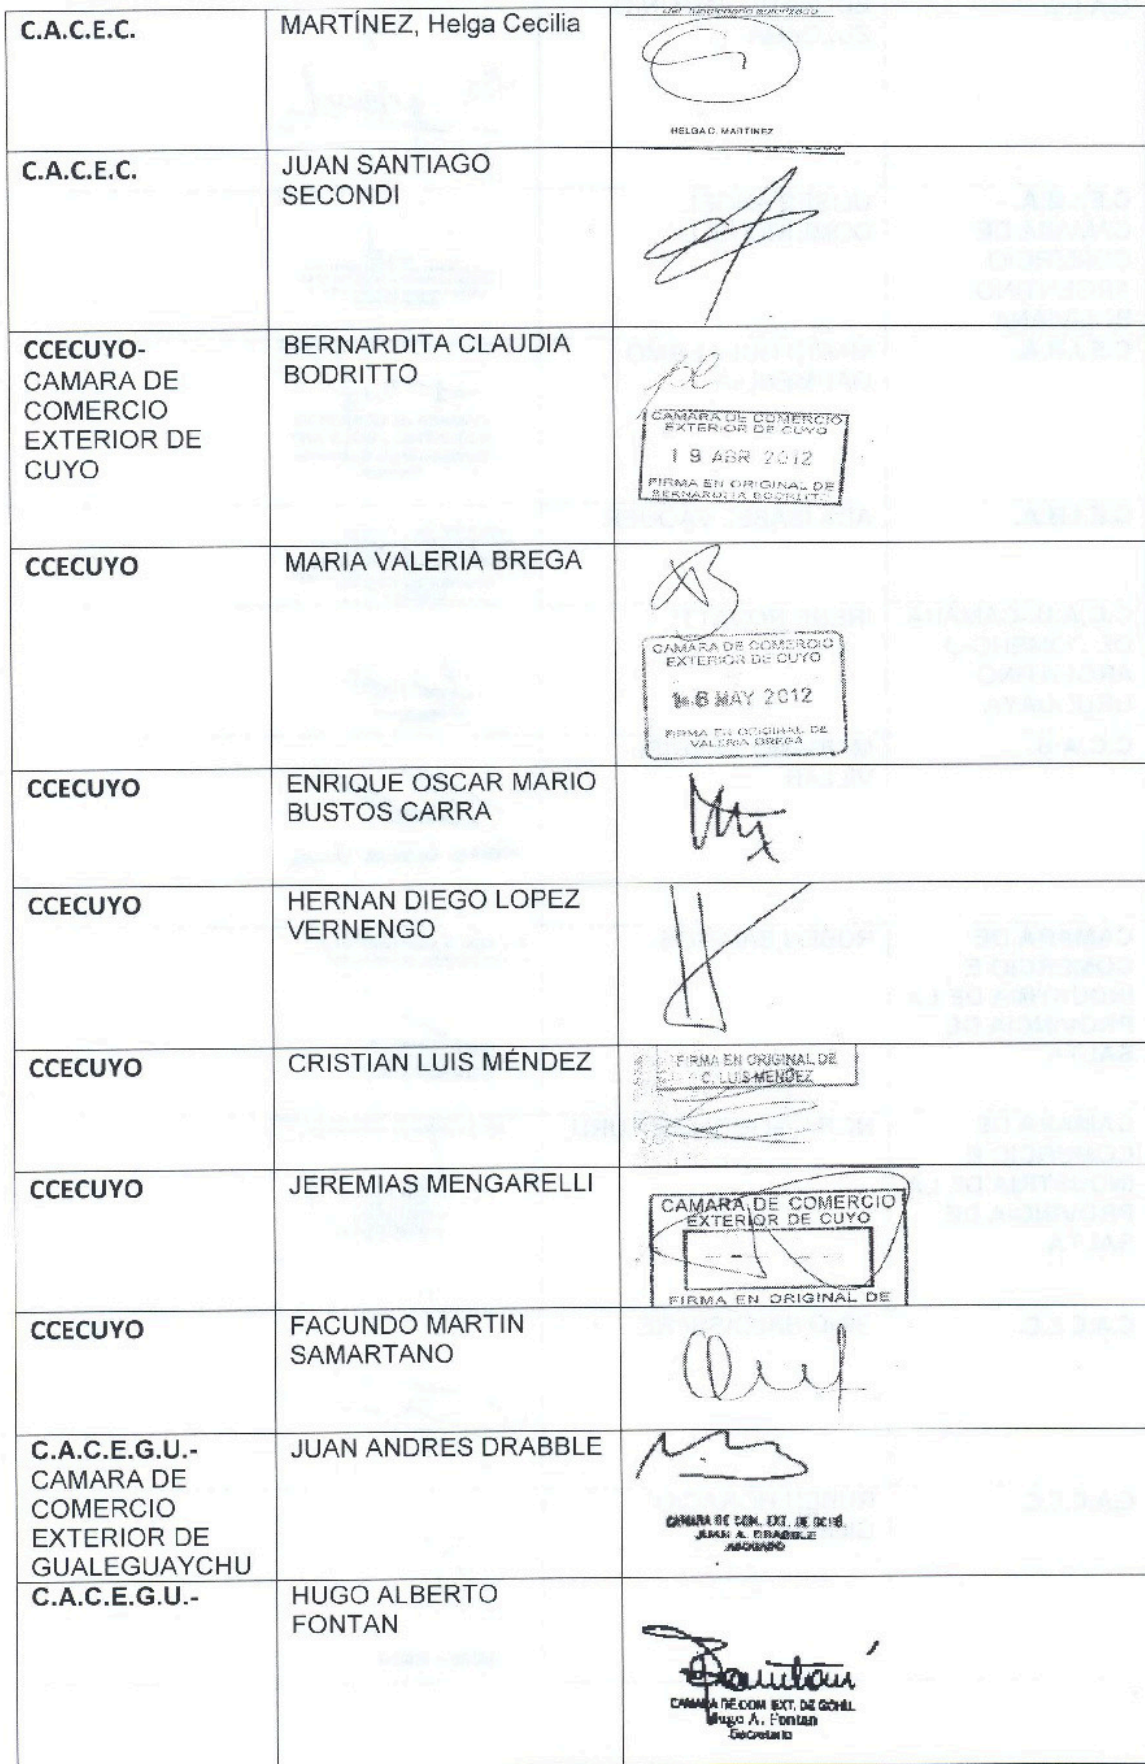 C.A.C.E.C.
MARTÍNEZ, Helga Cecilia
del funcionario autorizado
HELGA C. MARTINEZ
C.A.C.E.C.
JUAN SANTIAGO
SECONDI
CCECUYO-
CAMARA DE
COMERCIO
EXTERIOR DE
CUYO
BERNARDITA CLAUDIA
BODRITTO
CAMARA DE COMERCIO
EXTERIOR DE CUYO
19 ABR 2012
FIRMA EN ORIGINAL DE
BERNARDITA BODRITTO
CCECUYO
MARIA VALERIA BREGA
CAMARA DE COMERCIO
EXTERIOR DE CUYO
MAY 2012
FIRMA EN ORIGINAL DE
VALERIA BREGA
CCECUYO
ENRIQUE OSCAR MARIO
BUSTOS CARRA
CCECUYO
HERNAN DIEGO LOPEZ
VERNENGO
CCECUYO
CRISTIAN LUIS MÉNDEZ
FIRMA EN ORIGINAL DE
C. LUIS MENDEZ
CCECUYO
JEREMIAS MENGARELLI
CAMARA DE COMERCIO
EXTERIOR DE CUYO
FIRMA EN ORIGINAL DE
CCECUYO
FACUNDO MARTIN
SAMARTANO
C.A.C.E.G.U.-
CAMARA DE
COMERCIO
EXTERIOR DE
GUALEGUAYCHU
JUAN ANDRES DRABBLE
CAMARA DE COM. EXT. DE GCHÚ.
JUAN A. DRABBLE
ABOGADO
C.A.C.E.G.U.-
HUGO ALBERTO
FONTAN
CAMARA DE COM. EXT. DE GCHU.
Hugo A. Fontan
Secretario